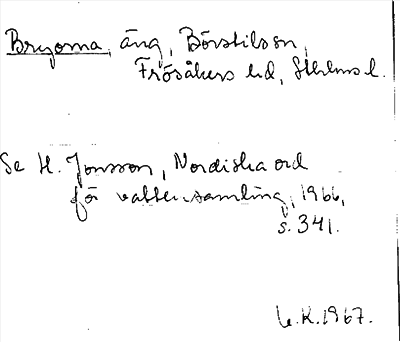 Bryorna, äng, Börstilssn,
Frösåkers hd, Sthlms l.
Se H. Jonsson, Nordiska ord
för vattensamling, 1966,
s. 341.
G.K. 1967.